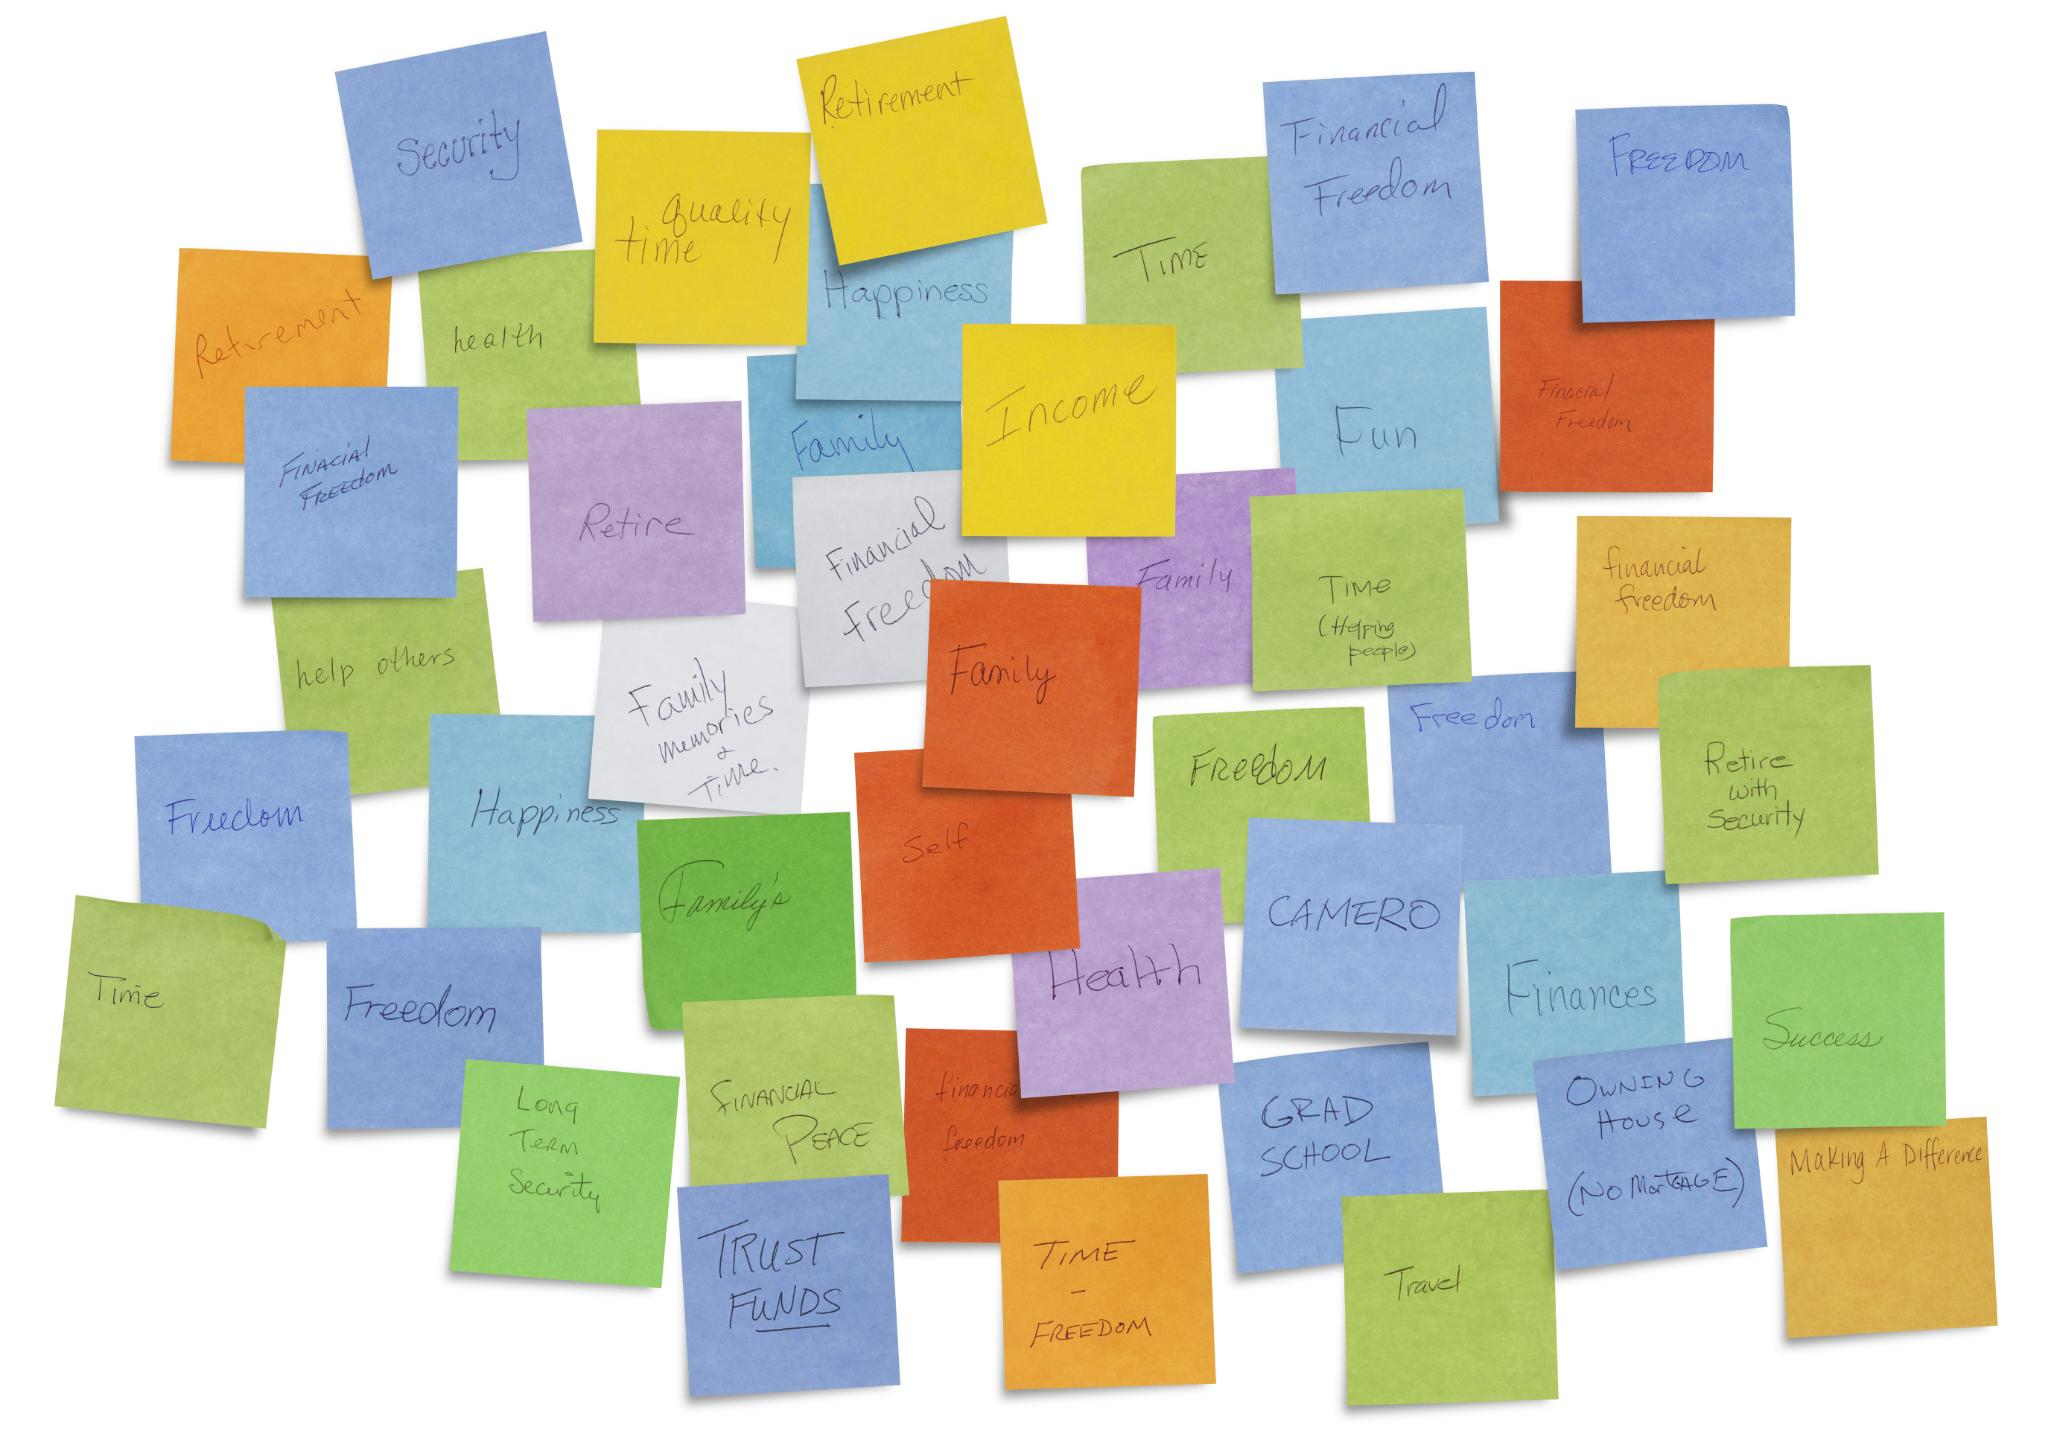 Security
quality
time
Retirement
Happiness
Time
Financial
Freedom
FREEDOM
Retirement
health
Finacial
Freedom
FINACIAL
FREEDOM
Retire
Family
Income
Fun
Financial
Freedom
Family
Time
(Helping
people)
financial
freedom
help others
Family
memories
&
Time.
Family
Freedom
Freedom
Retire
with
Security
Freedom
Happiness
Family's
Self
CAMERO
Time
Freedom
Health
Finances
Success
Long
Term
Security
FINANCIAL
PEACE
financia
freedom
GRAD
SCHOOL
OWNING
House
(No MortGAGE)
Making A Difference
TRUST
FUNDS
TIME
-
FREEDOM
Travel